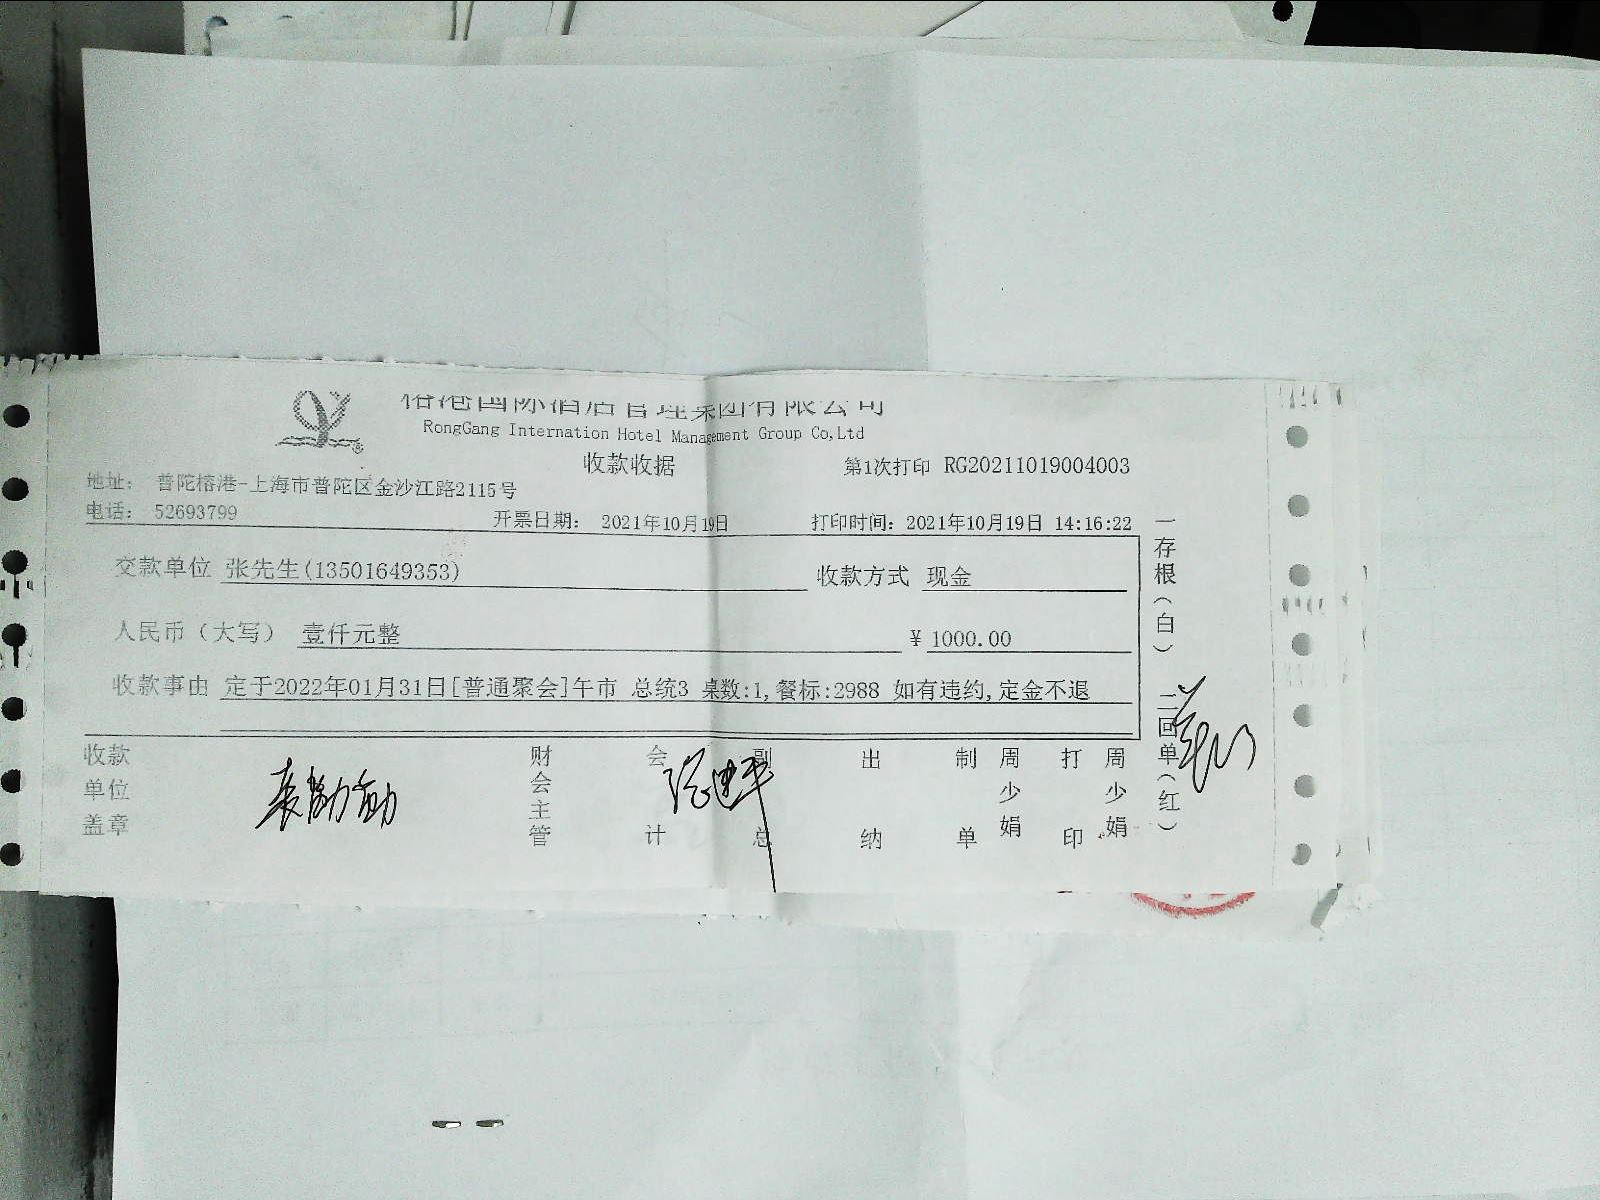 榕港国际酒店管理集团有限公司
RongGang Internation Hotel Management Group Co,Ltd
收款收据
第1次打印 RG20211019004003
地址： 普陀榕港-上海市普陀区金沙江路2115号
电话： 52693799
开票日期： 2021年10月19日
打印时间：2021年10月19日 14:16:22
交款单位 张先生(13501649353)
收款方式 现金
人民币（大写） 壹仟元整
￥1000.00
收款事由 定于2022年01月31日[普通聚会]午市 总统3 桌数:1,餐标:2988 如有违约,定金不退
收款单位盖章
财会主管
会计
副总
出纳
制单
周少娟
打印
周少娟
一存根（白）
二回单（红）